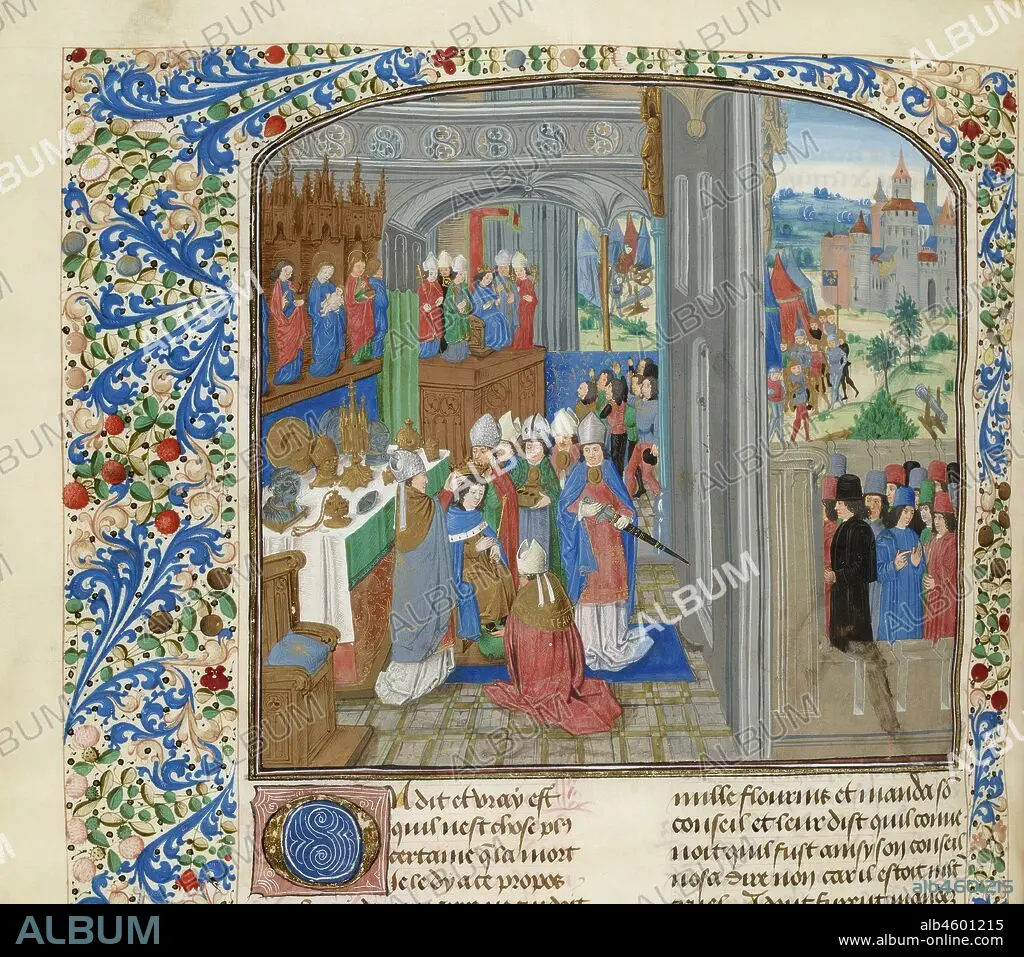 ON dit et vray est
quil nest chose pl9
certaine q̄ la mort
Je le dy a ce propos
mille flourins et manda sō
conseil et leur dist quil conue
noit quil fust ainsy son conseil
nosa dire non car il estoit
alb4601215
ALBUM
alb4601215
www.album-online.com